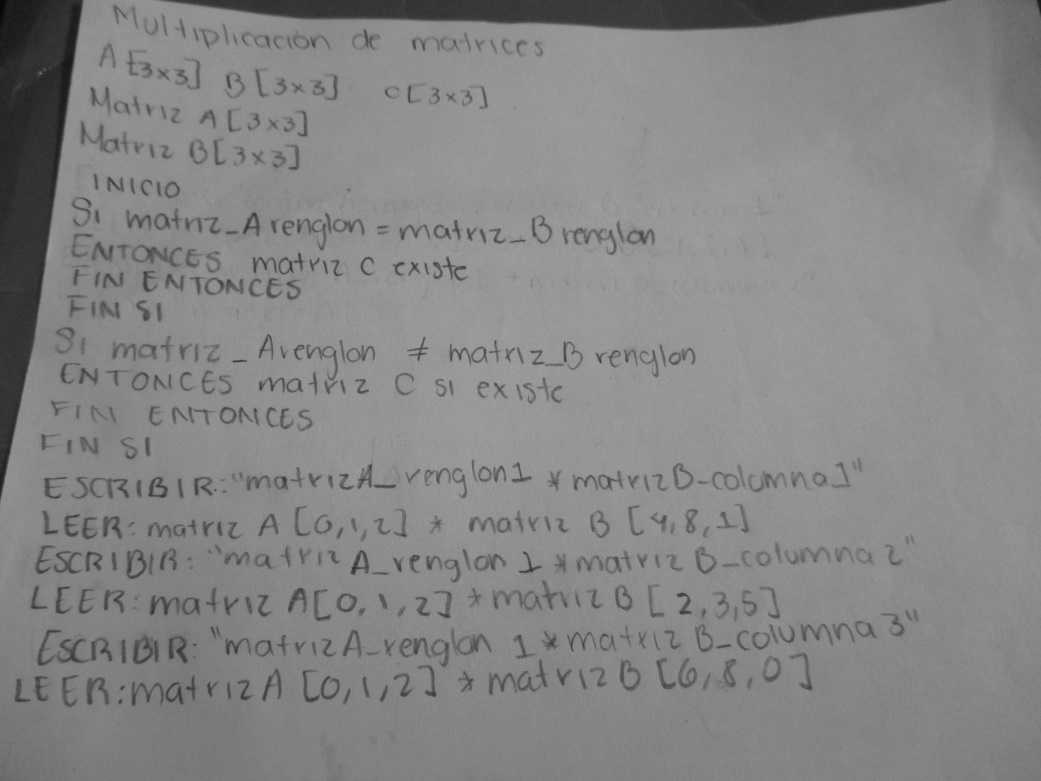 Multiplicación de matrices
A [3x3] B [3x3] C [3x3]
Matriz A [3x3]
Matriz B [3x3]
INICIO
Si matriz_A renglon = matriz_B renglon
ENTONCES matriz C existe
FIN ENTONCES
FIN SI
Si matriz_A renglon ≠ matriz_B renglon
ENTONCES matriz C si existe
FIN ENTONCES
FIN SI
ESCRIBIR: "matriz A_renglon 1 * matriz B-columna 1"
LEER: matriz A [0,1,2] * matriz B [4,8,1]
ESCRIBIR: "matriz A_renglon 1 * matriz B_columna 2"
LEER: matriz A [0,1,2] * matriz B [2,3,5]
ESCRIBIR: "matriz A_renglon 1 * matriz B_columna 3"
LEER: matriz A [0,1,2] * matriz B [6,8,0]